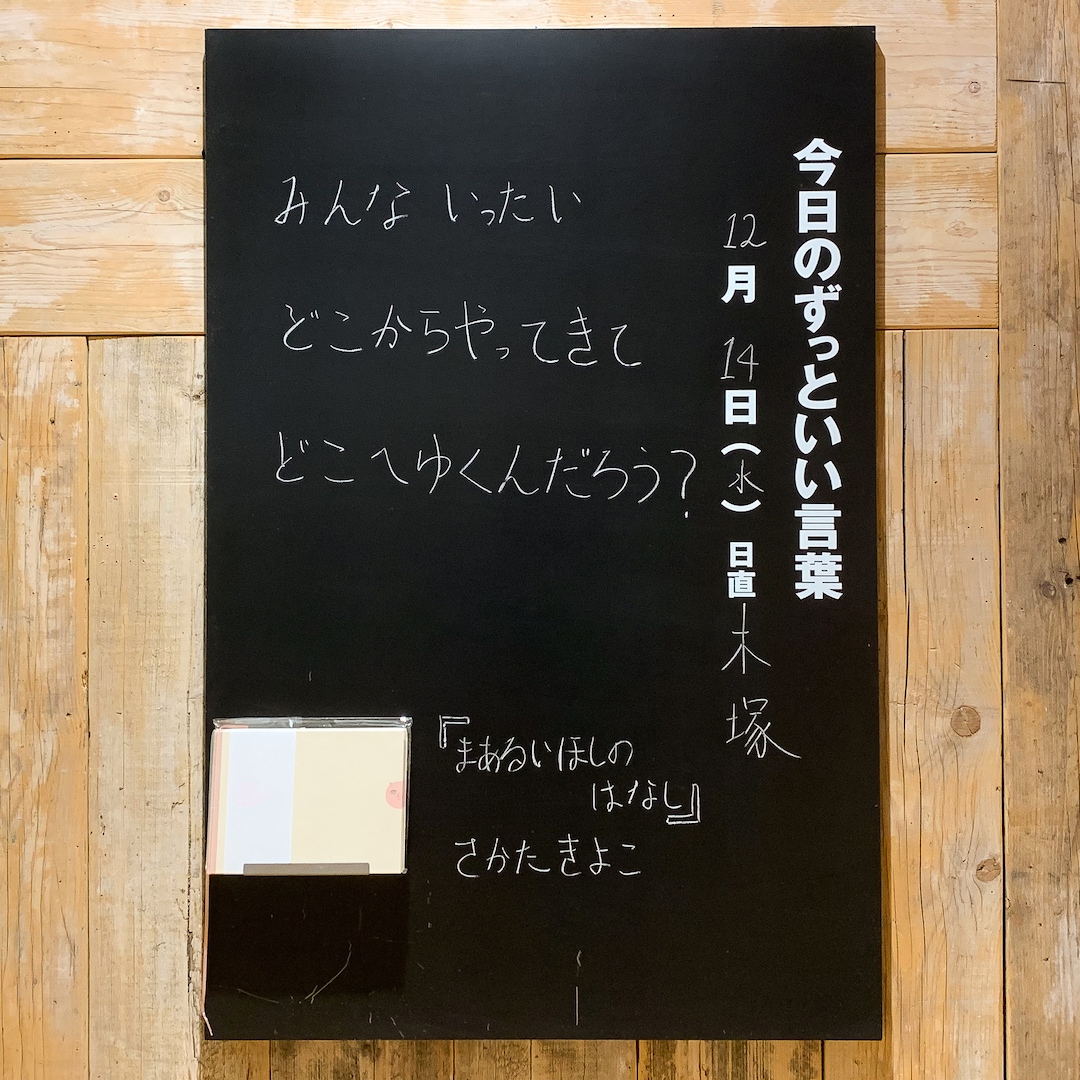 今日のずっといい言葉
12月 14日(水) 日直 木塚
みんな いったい
どこからやってきて
どこへゆくんだろう?
『まあるいほしの
はなし』
さかたきよこ